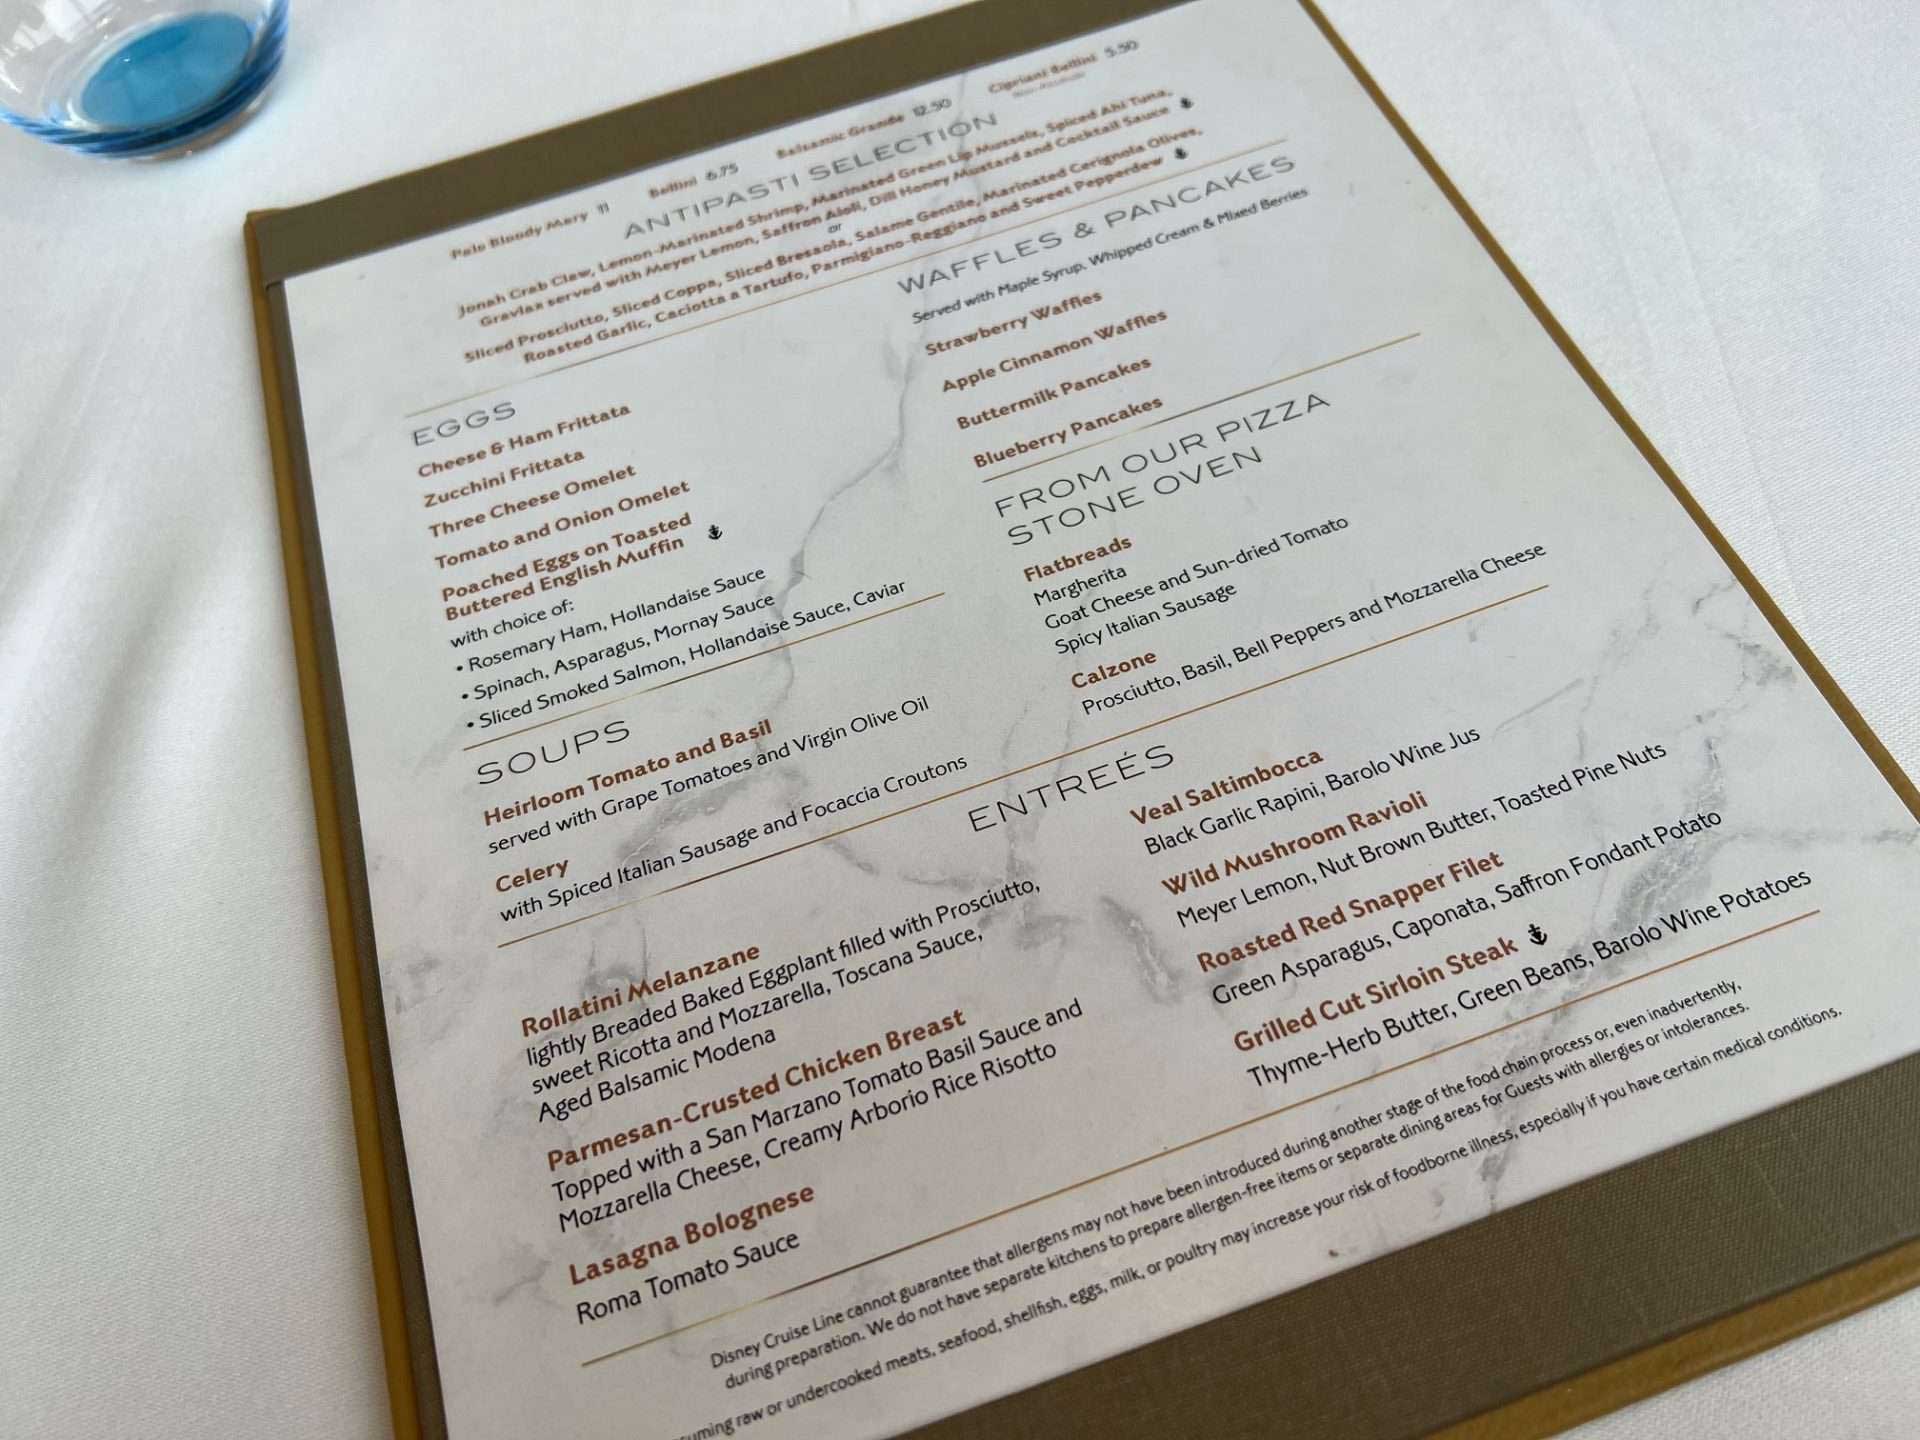 Palo Bloody Mary 11 Bellini 6.75 Balsamic Grande 12.50 Cipriani Bellini 5.50
ANTIPASTI SELECTION
Jonah Crab Claw, Lemon-Marinated Shrimp, Marinated Green Lip Mussels, Spiced Ahi Tuna,
Gravlax served with Meyer Lemon, Saffron Aioli, Dill Honey Mustard and Cocktail Sauce
or
Sliced Prosciutto, Sliced Coppa, Sliced Bresaola, Salame Gentile, Marinated Cerignola Olives,
Roasted Garlic, Caciotta a Tartufo, Parmigiano-Reggiano and Sweet Pepperdew
EGGS
Cheese & Ham Frittata
Zucchini Frittata
Three Cheese Omelet
Tomato and Onion Omelet
Poached Eggs on Toasted
Buttered English Muffin
with choice of:
• Rosemary Ham, Hollandaise Sauce
• Spinach, Asparagus, Mornay Sauce
• Sliced Smoked Salmon, Hollandaise Sauce, Caviar
SOUPS
Heirloom Tomato and Basil
served with Grape Tomatoes and Virgin Olive Oil
Celery
with Spiced Italian Sausage and Focaccia Croutons
WAFFLES & PANCAKES
Served with Maple Syrup, Whipped Cream & Mixed Berries
Strawberry Waffles
Apple Cinnamon Waffles
Buttermilk Pancakes
Blueberry Pancakes
FROM OUR PIZZA
STONE OVEN
Flatbreads
Margherita
Goat Cheese and Sun-dried Tomato
Spicy Italian Sausage
Calzone
Prosciutto, Basil, Bell Peppers and Mozzarella Cheese
ENTREÉS
Rollatini Melanzane
lightly Breaded Baked Eggplant filled with Prosciutto,
sweet Ricotta and Mozzarella, Toscana Sauce,
Aged Balsamic Modena
Parmesan-Crusted Chicken Breast
Topped with a San Marzano Tomato Basil Sauce and
Mozzarella Cheese, Creamy Arborio Rice Risotto
Lasagna Bolognese
Roma Tomato Sauce
Veal Saltimbocca
Black Garlic Rapini, Barolo Wine Jus
Wild Mushroom Ravioli
Meyer Lemon, Nut Brown Butter, Toasted Pine Nuts
Roasted Red Snapper Filet
Green Asparagus, Caponata, Saffron Fondant Potato
Grilled Cut Sirloin Steak
Thyme-Herb Butter, Green Beans, Barolo Wine Potatoes
Disney Cruise Line cannot guarantee that allergens may not have been introduced during another stage of the food chain process or, even inadvertently,
during preparation. We do not have separate kitchens to prepare allergen-free items or separate dining areas for Guests with allergies or intolerances.
raw or undercooked meats, seafood, shellfish, eggs, milk, or poultry may increase your risk of foodborne illness, especially if you have certain medical conditions.